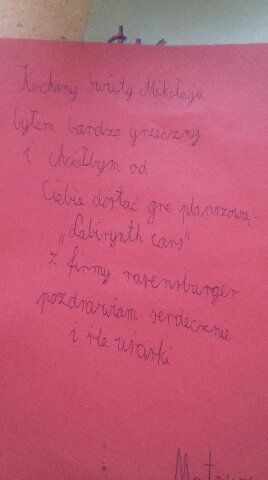 Kochany Święty Mikołaju
byłem bardzo grzeczny
i chciałbym od
Ciebie dostać gre planszową.
„Labirynth cars"
z firmy ravensburger
pozdrawiam serdecznie
i śle uściski